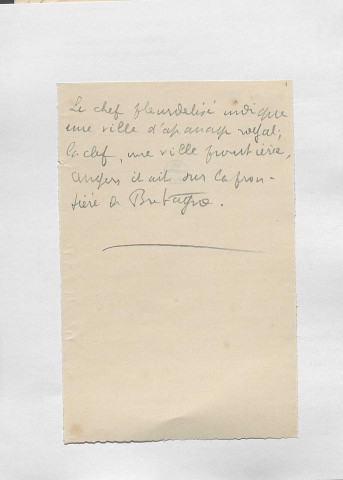 Le chef fleurdelisé indique
une ville d'apanage royal,
la clef, une ville frontière,
Angers était sur la fron-
tière de Bretagne.